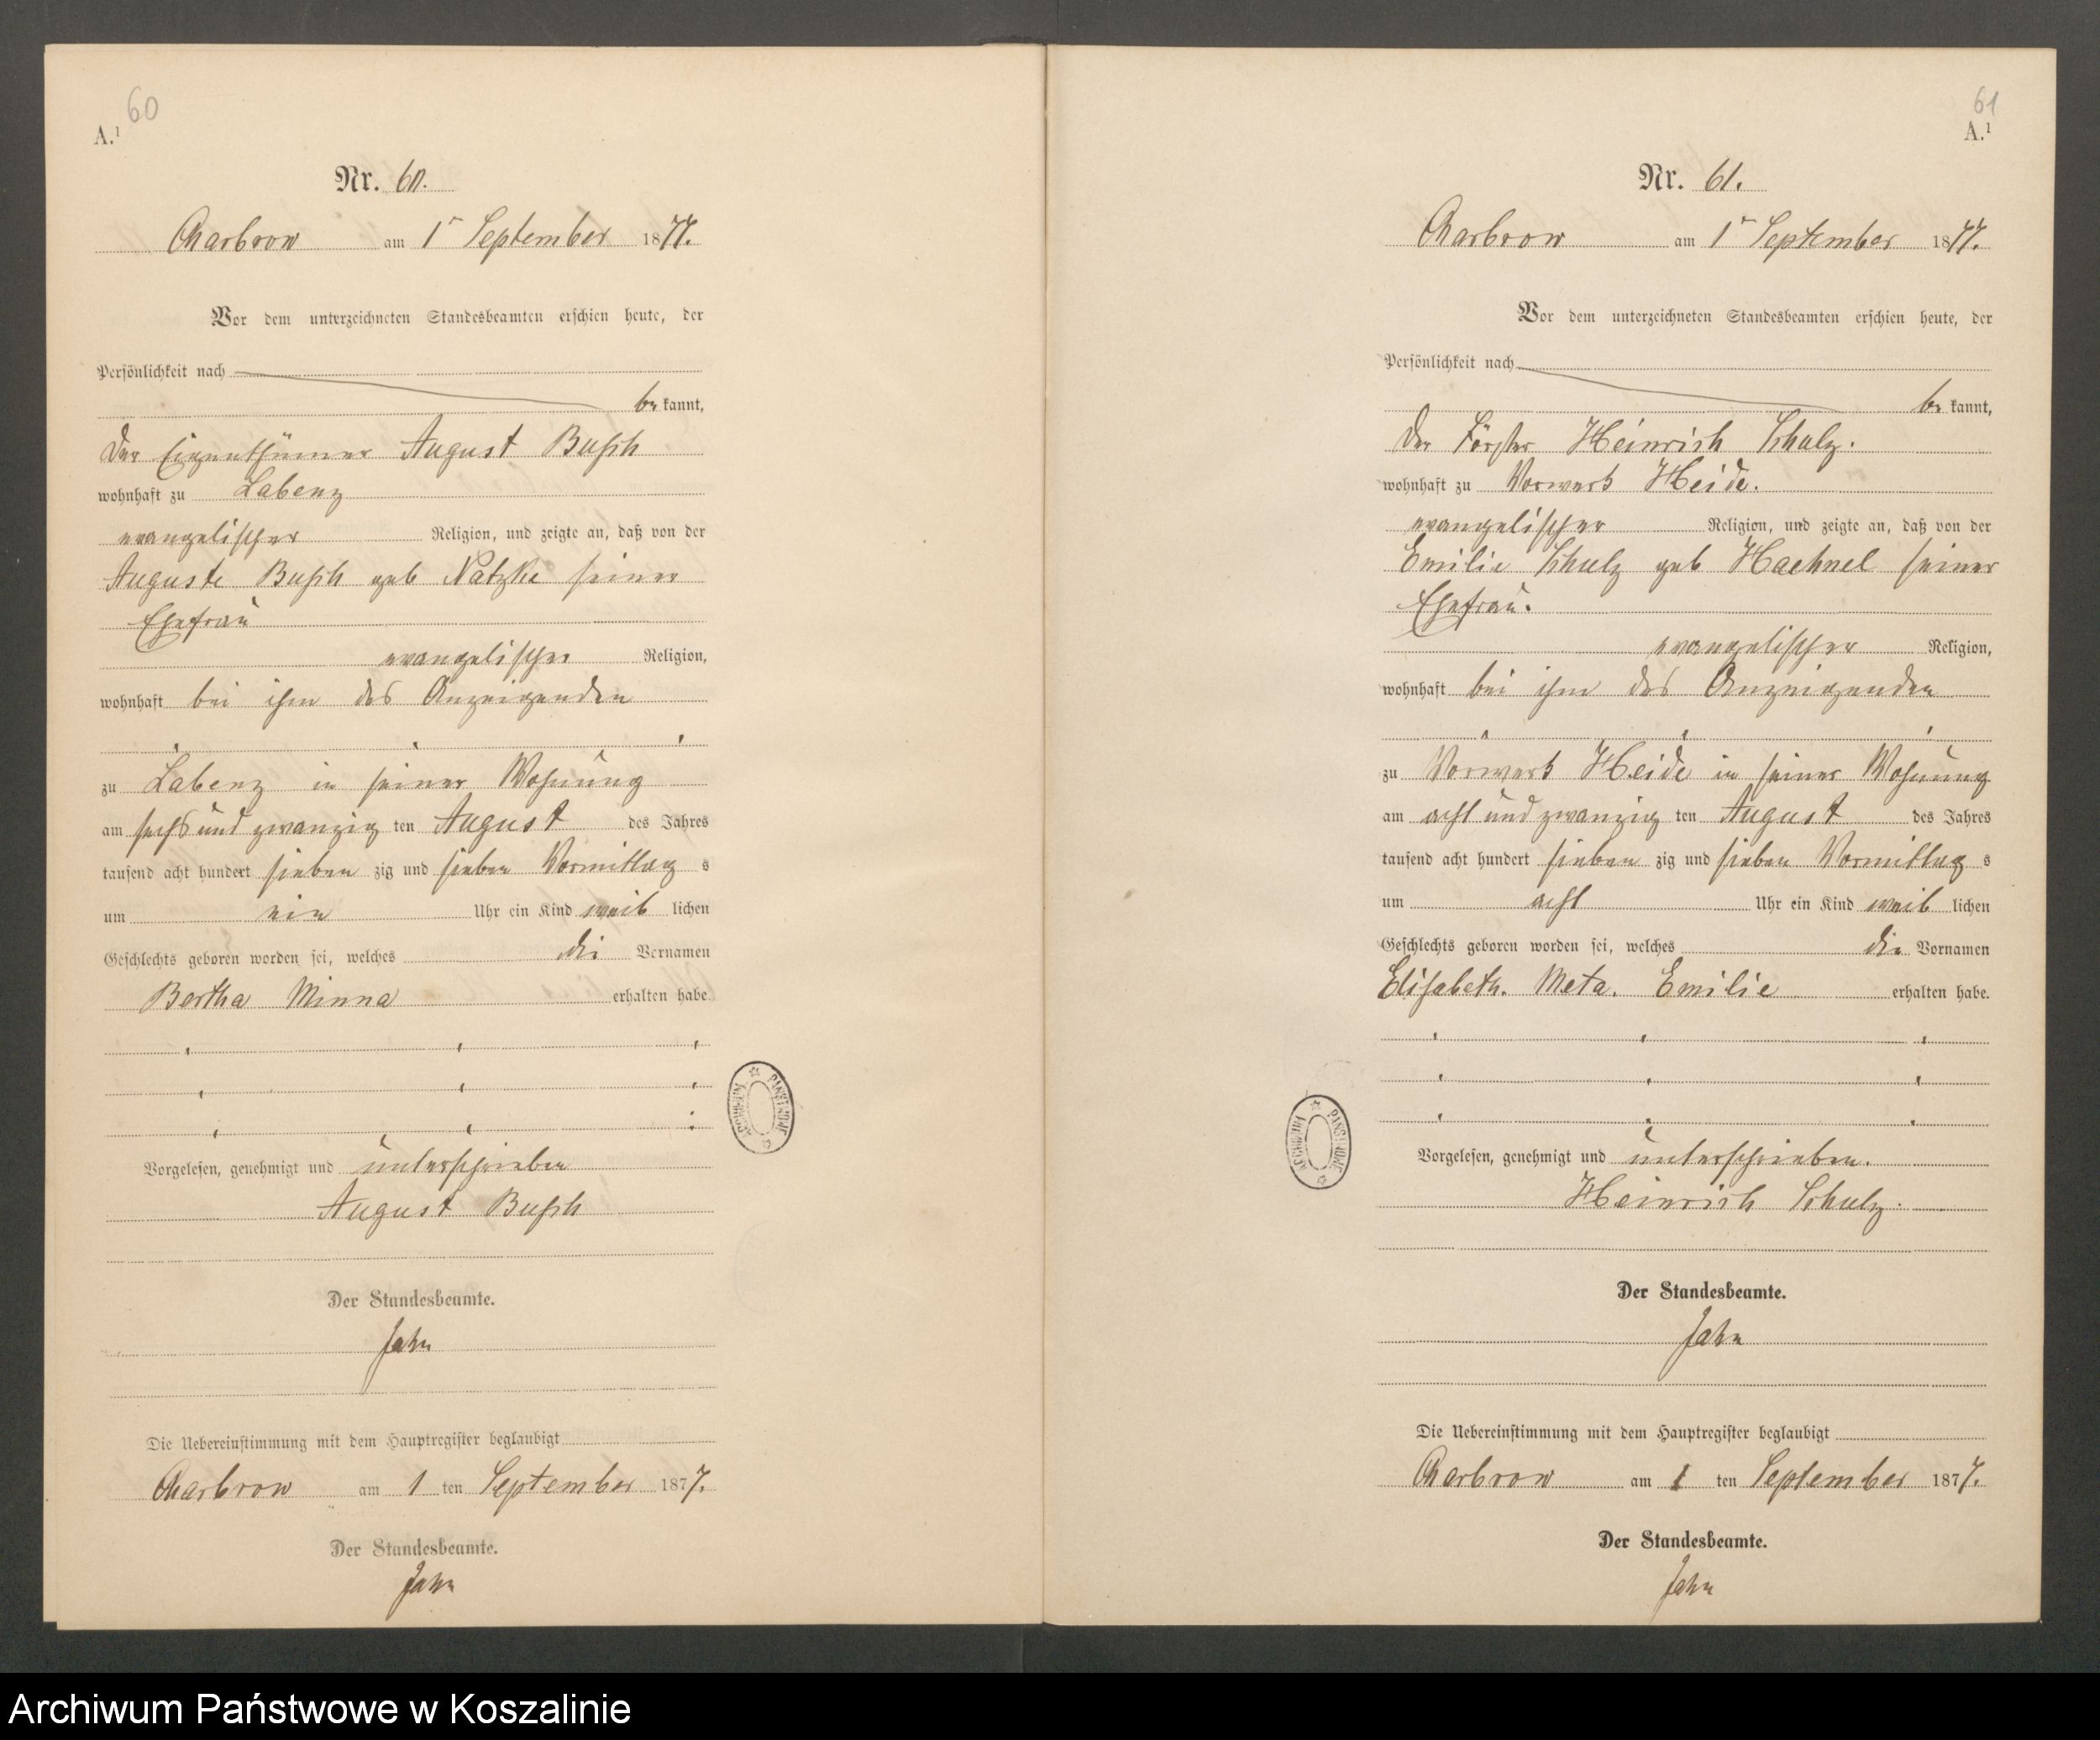 60
A.¹
Nr. 60.
Charbrow am 1ᵗ September 1877.
Vor dem unterzeichneten Standesbeamten erschien heute, der
Persönlichkeit nach
be kannt,
der Eigenthümer August Bussh
wohnhaft zu Labenz
evangelischer Religion, und zeigte an, daß von der
Auguste Bussh geb Natzke seiner
Ehefrau
evangelischer Religion,
wohnhaft bei ihm des Anzeigenden
zu Labenz in seiner Wohnung
am sechs und zwanzig ten August des Jahres
tausend acht hundert sieben zig und sieben Vormittag s
um ein Uhr ein Kind weib lichen
Geschlechts geboren worden sei, welches die Vornamen
Bertha Minna erhalten habe.
Vorgelesen, genehmigt und unterschrieben
August Bussh
Der Standesbeamte.
Jahn
Die Uebereinstimmung mit dem Hauptregister beglaubigt
Charbrow am 1 ten September 1877.
Der Standesbeamte.
Jahn
ARCHIWUM PAŃSTWOWE
61
A.¹
Nr. 61.
Charbrow am 1ᵗ September 1877.
Vor dem unterzeichneten Standesbeamten erschien heute, der
Persönlichkeit nach
be kannt,
der Förster Heinrich Schulz.
wohnhaft zu Vorwerk Heide.
evangelischer Religion, und zeigte an, daß von der
Emilie Schulz geb Haehnel seiner
Ehefrau.
evangelischer Religion,
wohnhaft bei ihm des Anzeigenden
zu Vorwerk Heide in seiner Wohnung
am acht und zwanzig ten August des Jahres
tausend acht hundert sieben zig und sieben Vormittag s
um acht Uhr ein Kind weib lichen
Geschlechts geboren worden sei, welches die Vornamen
Elisabeth. Meta. Emilie erhalten habe.
Vorgelesen, genehmigt und unterschrieben.
Heinrich Schulz.
Der Standesbeamte.
Jahn
Die Uebereinstimmung mit dem Hauptregister beglaubigt
Charbrow am 1 ten September 1877.
Der Standesbeamte.
Jahn
ARCHIWUM PAŃSTWOWE
Archiwum Państwowe w Koszalinie